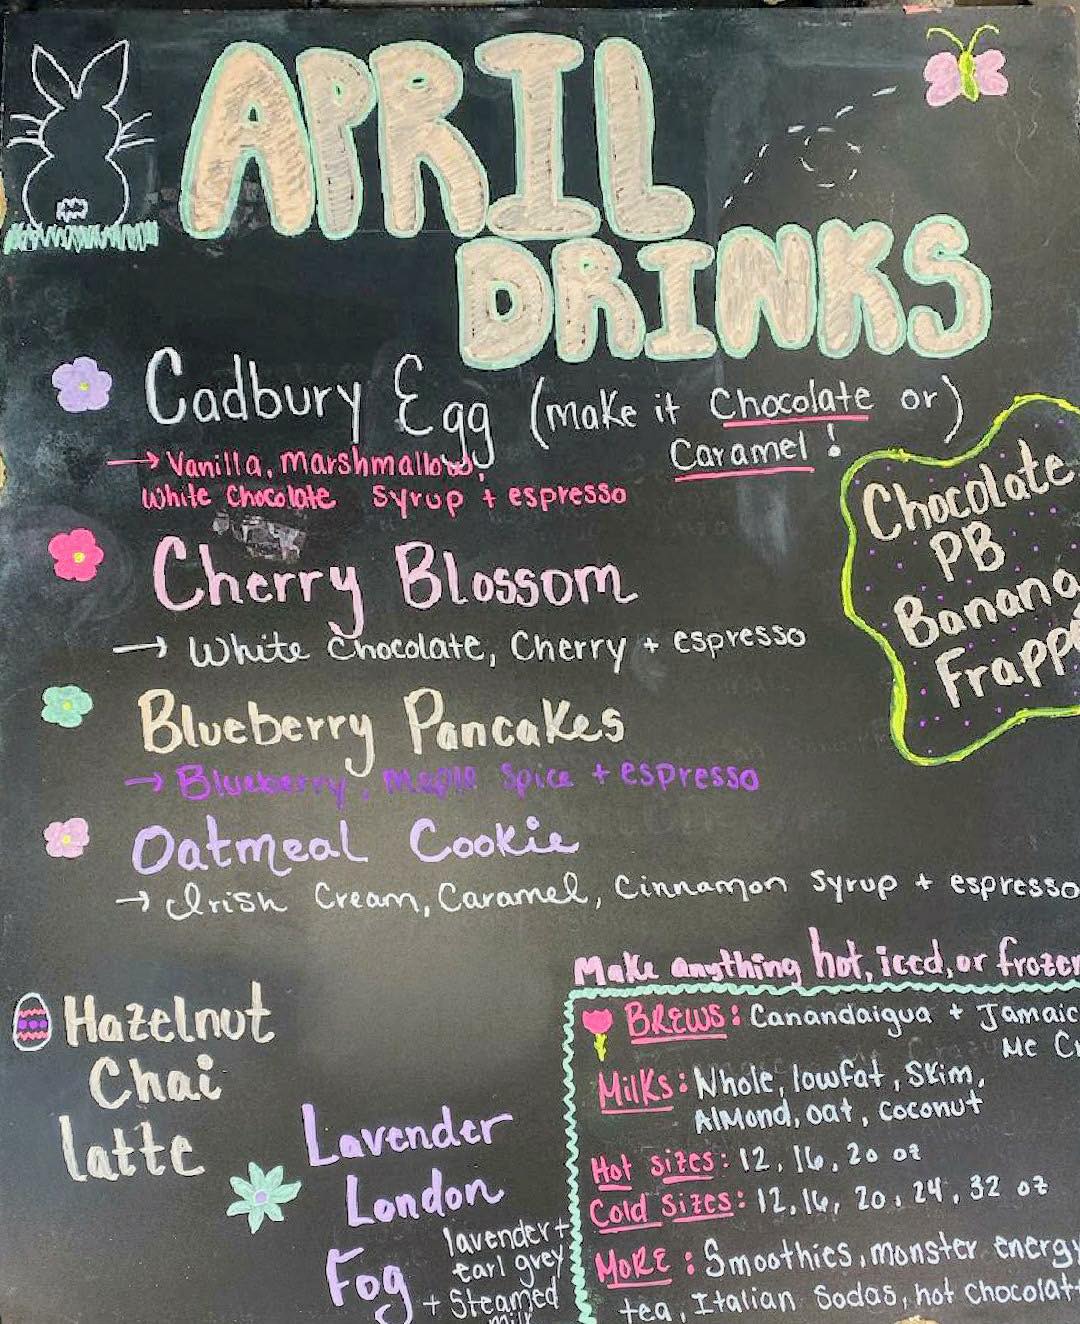 APRIL
DRINKS
Cadbury Egg (make it Chocolate or)
Caramel!
→ Vanilla, marshmallow,
White Chocolate Syrup + espresso
Chocolate
PB
Banana
Frappé
Cherry Blossom
→ White Chocolate, Cherry + espresso
Blueberry Pancakes
→ Blueberry, maple Spice + espresso
Oatmeal Cookie
→ Irish Cream, Caramel, Cinnamon Syrup + espresso
Make anything hot, iced, or frozen
BREWS: Canandaigua + Jamaic
Me Cr
Milks: Whole, lowfat, Skim,
Almond, oat, coconut
Hot sizes: 12, 16, 20 oz
Cold Sizes: 12, 16, 20, 24, 32 oz
MORE: Smoothies, monster energy
tea, Italian Sodas, hot chocolat
Hazelnut
Chai
latte
Lavender
London
Fog
lavender +
earl grey
+ Steamed
milk